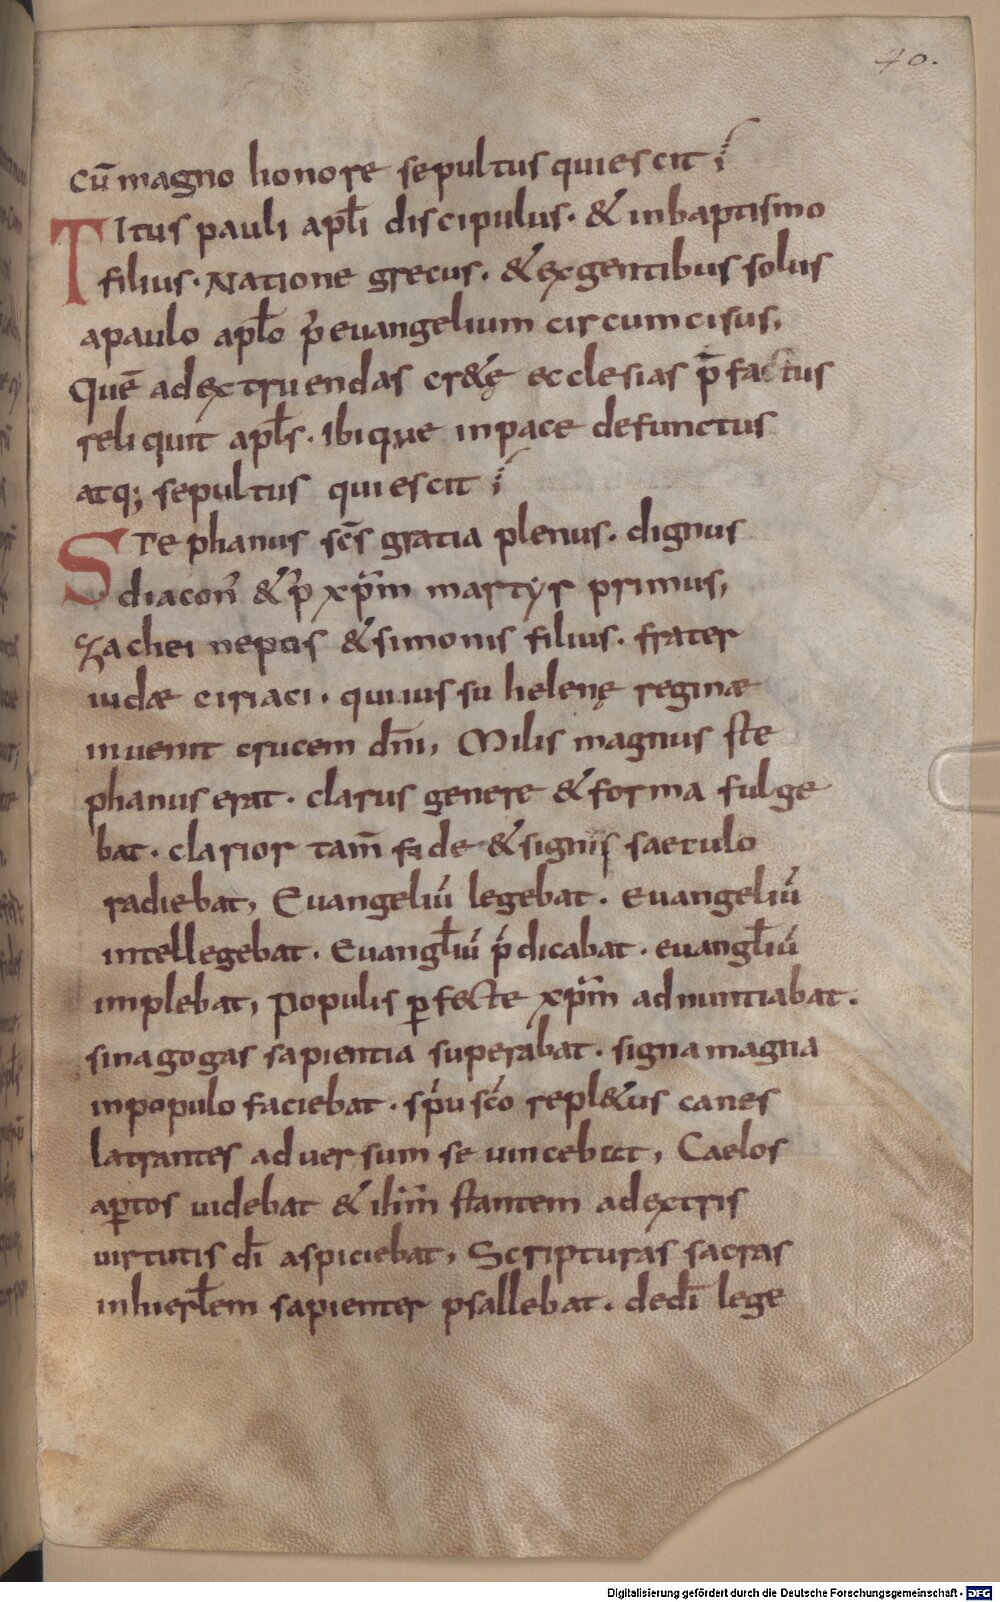 40.
cū magno honore sepultus quiescit;
TItus pauli apłi discipulus. & inbaptismo
filius. Natione grecus. & exgentibus solus
apaulo apło p̄ euangelium circumcisus,
Quē adextruendas cr&ę ecclesias p̄factus
reliquit apłs. Ibique inpace defunctus
atq; sepultus quiescit;
STephanus sc̄s gratia plenus. dignus
diacon̄ & p̄ xp̄m martyr primus,
Zachei neptis & simonis filius. frater
iudæ ciriaci. qui iussu helenę reginæ
inuenit crucem dn̄i, Milis magnus ste
phanus erat. clarus genere & forma fulge
bat. clarior tam̄ fide & signis saeculo
radiebat, Euangeliū legebat. euangeliū
intellegebat. Euangłiū p̄dicabat. euangłiū
implebat, populis ꝑfecte xp̄m adnuntiabat.
sinagogas sapientia superabat. signa magna
inpopulo faciebat. sp̄u sc̄o repl&us canes
latrantes aduersum se uincebat, Caelos
aꝑtos uidebat & ih̄m stantem adextris
uirtutis dī aspiciebat, Scripturas sacras
inhierłem sapienter psallebat. dedī lege
Digitalisierung gefördert durch die Deutsche Forschungsgemeinschaft - DFG